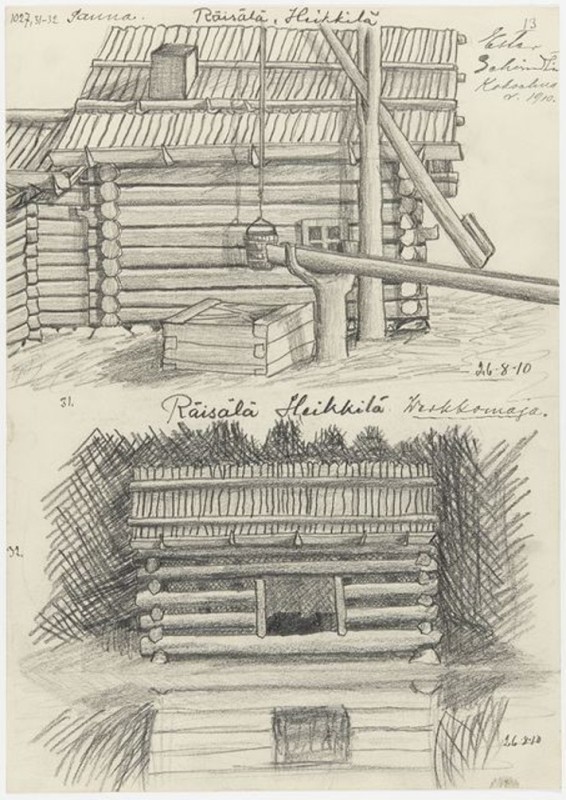 1027,31-32 Sauna.
Räisälä, Heikkilä
13
Ester
Kokoelma
v. 1910.
26-8-10
31.
Räisälä Heikkilä Werkkomaja.
32.
26-8-10